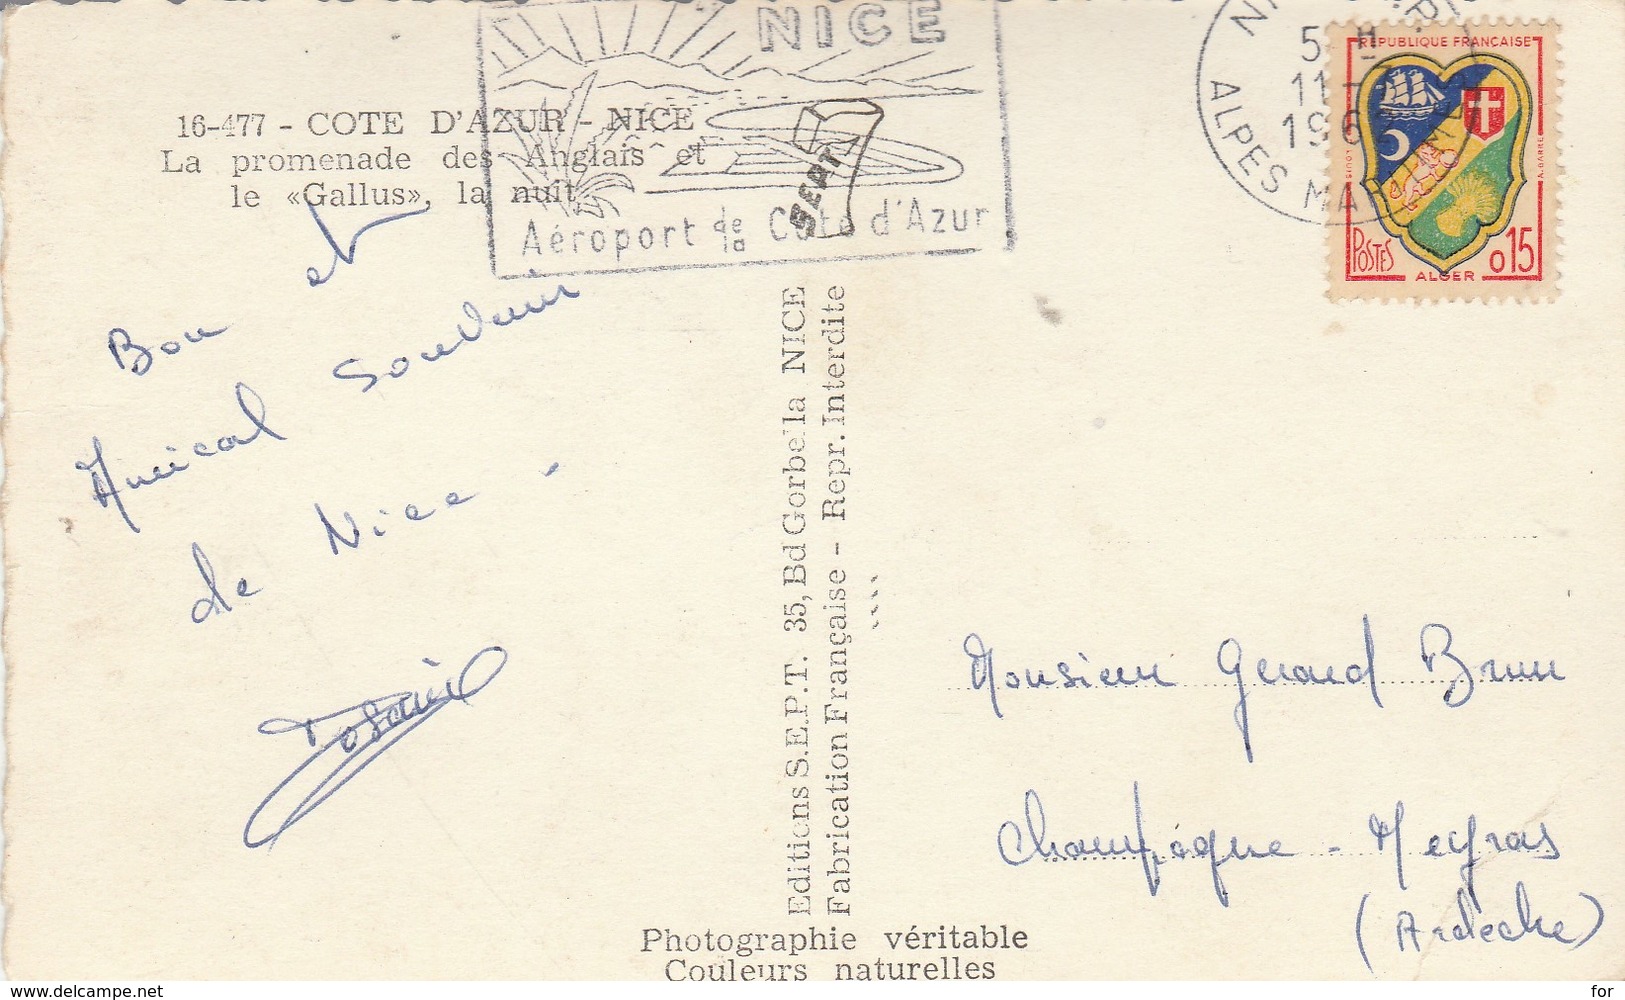 NICE
Aéroport de la Côte d'Azur
5 H
11 -
196
ALPES MARITIMES
REPUBLIQUE FRANÇAISE
POSTES
ALGER
0,15
16-477 - COTE D'AZUR - NICE
La promenade des Anglais et
le «Gallus», la nuit
SEPT
Bon et
Amical Souvenir
de Nice -
Editions S.E.P.T. 35, Bd Gorbella NICE
Fabrication Française - Repr. Interdite
Monsieur Gerard Brun
Champagne - Meyras
(Ardèche)
Photographie véritable
Couleurs naturelles
www.delcampe.net
for